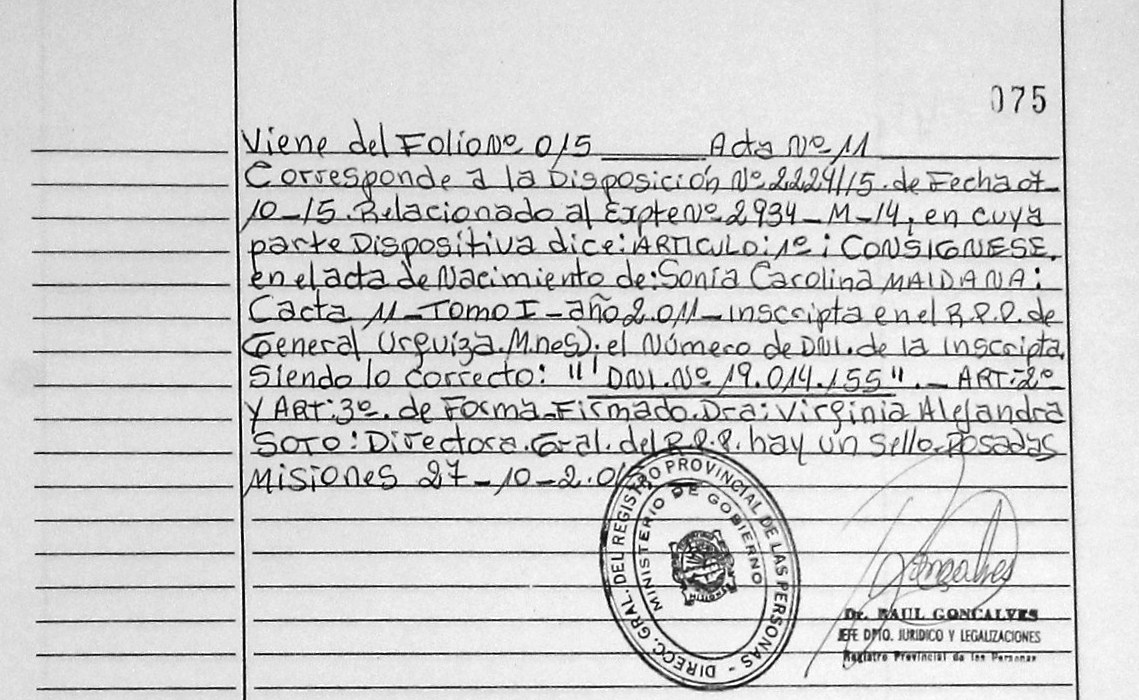 075
Viene del Folio Nº 015 ____ Acta Nº 11
Corresponde a la Disposición Nº 2224/15. de Fecha 07_
10_15. Relacionado al Expte Nº 2934_M_14, en cuya
parte Dispositiva dice: ARTICULO: 1º: CONSIGNESE.
en el acta de Nacimiento de: Sonia Carolina MALDANA:
(acta 11_Tomo I_año 2.011_inscripta en el R.P.P. de
General Urquiza. M.nes); el Número de DNI. de la inscripta,
siendo lo correcto: "" DNI. Nº 19.014.155". _ ART: 2º
y ART: 3º. de Forma_Firmado. Dra: Virginia Alejandra
SOTO: Directora. Gral. del R.P.P. hay un sello. Posadas
Misiones 27_10_2.015
DIRECC. GRAL. DEL REGISTRO PROVINCIAL DE LAS PERSONAS -
MINISTERIO DE GOBIERNO
Gonçalves
Dr. RAUL GONCALVES
JEFE DPTO. JURIDICO Y LEGALIZACIONES
Registro Provincial de las Personas